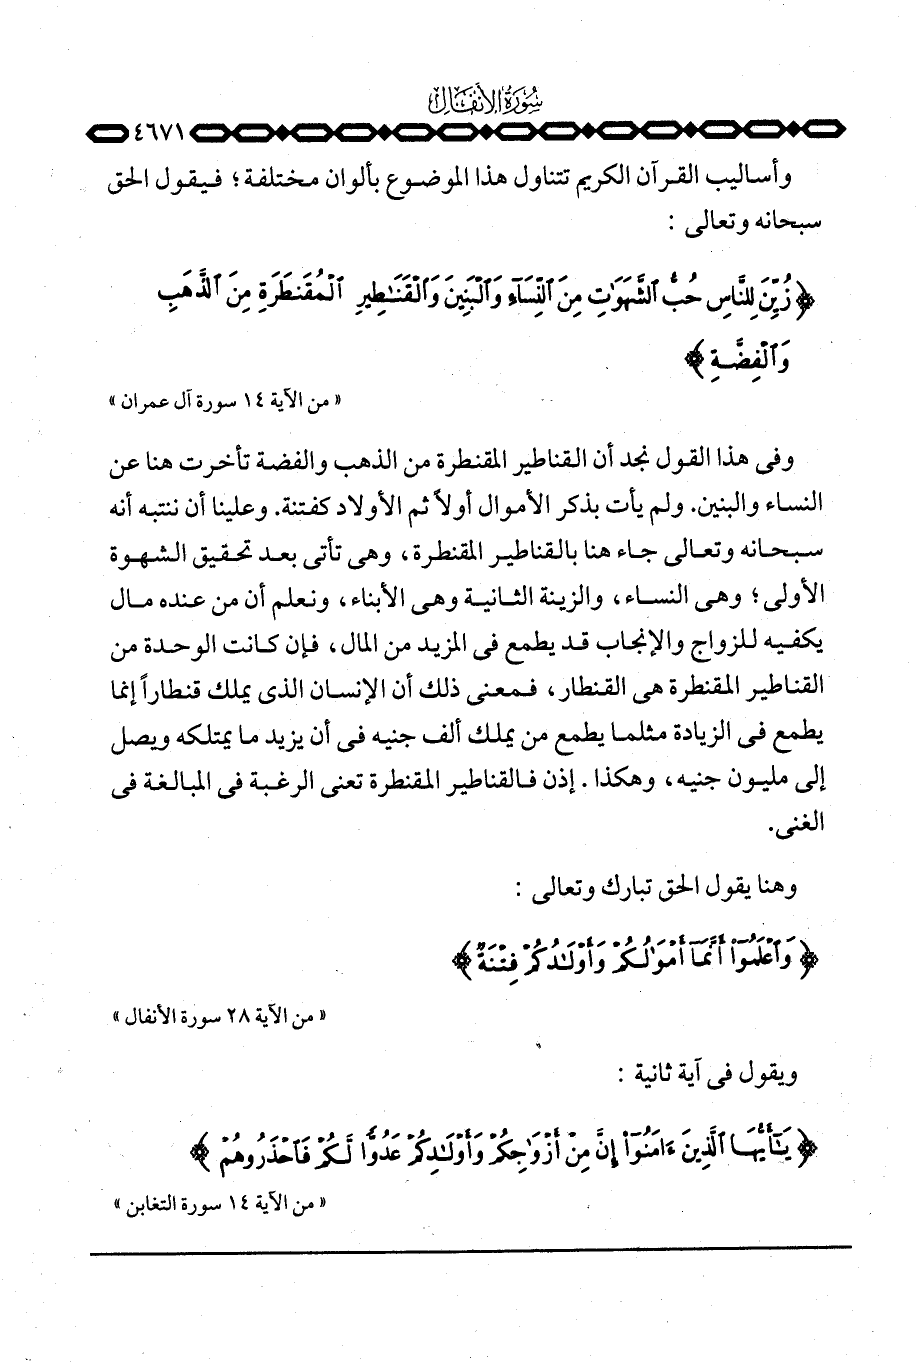 سورة الأنفال
٤٦٧١
وأساليب القرآن الكريم تتناول هذا الموضوع بألوان مختلفة؛ فيقول الحق
سبحانه وتعالى :
﴿ زُيِّنَ لِلنَّاسِ حُبُّ ٱلشَّهَوَٰتِ مِنَ ٱلنِّسَآءِ وَٱلْبَنِينَ وَٱلْقَنَٰطِيرِ ٱلْمُقَنطَرَةِ مِنَ ٱلذَّهَبِ
وَٱلْفِضَّةِ ﴾
« من الآية ١٤ سورة آل عمران »
وفى هذا القول نجد أن القناطير المقنطرة من الذهب والفضة تأخرت هنا عن
النساء والبنين. ولم يأت بذكر الأموال أولاً ثم الأولاد كفتنة. وعلينا أن ننتبه أنه
سبحانه وتعالى جاء هنا بالقناطير المقنطرة، وهى تأتى بعد تحقيق الشهوة
الأولى؛ وهى النساء، والزينة الثانية وهى الأبناء، ونعلم أن من عنده مال
يكفيه للزواج والإنجاب قد يطمع فى المزيد من المال، فإن كانت الوحدة من
القناطير المقنطرة هى القنطار، فمعنى ذلك أن الإنسان الذى يملك قنطاراً إنما
يطمع فى الزيادة مثلما يطمع من يملك ألف جنيه فى أن يزيد ما يمتلكه ويصل
إلى مليون جنيه، وهكذا . إذن فالقناطير المقنطرة تعنى الرغبة فى المبالغة فى
الغنى.
وهنا يقول الحق تبارك وتعالى :
﴿ وَٱعْلَمُوٓا۟ أَنَّمَآ أَمْوَٰلُكُمْ وَأَوْلَٰدُكُمْ فِتْنَةٌ ﴾
« من الآية ٢٨ سورة الأنفال »
ويقول فى آية ثانية :
﴿ يَٰٓأَيُّهَا ٱلَّذِينَ ءَامَنُوٓا۟ إِنَّ مِنْ أَزْوَٰجِكُمْ وَأَوْلَٰدِكُمْ عَدُوًّا لَّكُمْ فَٱحْذَرُوهُمْ ﴾
« من الآية ١٤ سورة التغابن »